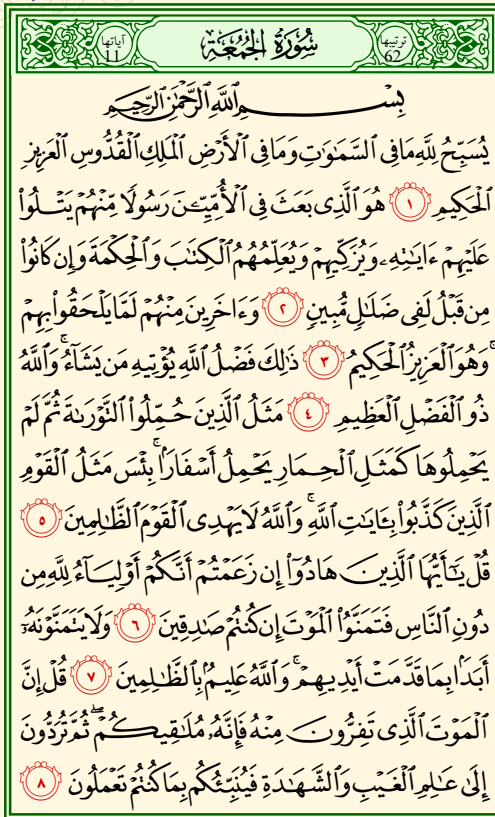 ترتيبها 62 سُورَةُ الْجُمُعَةِ آياتها 11
بِسْمِ ٱللَّهِ ٱلرَّحْمَٰنِ ٱلرَّحِيمِ
يُسَبِّحُ لِلَّهِ مَا فِى ٱلسَّمَٰوَٰتِ وَمَا فِى ٱلْأَرْضِ ٱلْمَلِكِ ٱلْقُدُّوسِ ٱلْعَزِيزِ
ٱلْحَكِيمِ ١ هُوَ ٱلَّذِى بَعَثَ فِى ٱلْأُمِّيِّۦنَ رَسُولًا مِّنْهُمْ يَتْلُوا۟
عَلَيْهِمْ ءَايَٰتِهِۦ وَيُزَكِّيهِمْ وَيُعَلِّمُهُمُ ٱلْكِتَٰبَ وَٱلْحِكْمَةَ وَإِن كَانُوا۟
مِن قَبْلُ لَفِى ضَلَٰلٍ مُّبِينٍ ٢ وَءَاخَرِينَ مِنْهُمْ لَمَّا يَلْحَقُوا۟ بِهِمْ
ۚ وَهُوَ ٱلْعَزِيزُ ٱلْحَكِيمُ ٣ ذَٰلِكَ فَضْلُ ٱللَّهِ يُؤْتِيهِ مَن يَشَآءُ ۚ وَٱللَّهُ
ذُو ٱلْفَضْلِ ٱلْعَظِيمِ ٤ مَثَلُ ٱلَّذِينَ حُمِّلُوا۟ ٱلتَّوْرَىٰةَ ثُمَّ لَمْ
يَحْمِلُوهَا كَمَثَلِ ٱلْحِمَارِ يَحْمِلُ أَسْفَارًۢا ۚ بِئْسَ مَثَلُ ٱلْقَوْمِ
ٱلَّذِينَ كَذَّبُوا۟ بِـَٔايَٰتِ ٱللَّهِ ۚ وَٱللَّهُ لَا يَهْدِى ٱلْقَوْمَ ٱلظَّٰلِمِينَ ٥
قُلْ يَٰٓأَيُّهَا ٱلَّذِينَ هَادُوٓا۟ إِن زَعَمْتُمْ أَنَّكُمْ أَوْلِيَآءُ لِلَّهِ مِن
دُونِ ٱلنَّاسِ فَتَمَنَّوُا۟ ٱلْمَوْتَ إِن كُنتُمْ صَٰدِقِينَ ٦ وَلَا يَتَمَنَّوْنَهُۥٓ
أَبَدًۢا بِمَا قَدَّمَتْ أَيْدِيهِمْ ۚ وَٱللَّهُ عَلِيمٌۢ بِٱلظَّٰلِمِينَ ٧ قُلْ إِنَّ
ٱلْمَوْتَ ٱلَّذِى تَفِرُّونَ مِنْهُ فَإِنَّهُۥ مُلَٰقِيكُمْ ۖ ثُمَّ تُرَدُّونَ
إِلَىٰ عَٰلِمِ ٱلْغَيْبِ وَٱلشَّهَٰدَةِ فَيُنَبِّئُكُم بِمَا كُنتُمْ تَعْمَلُونَ ٨